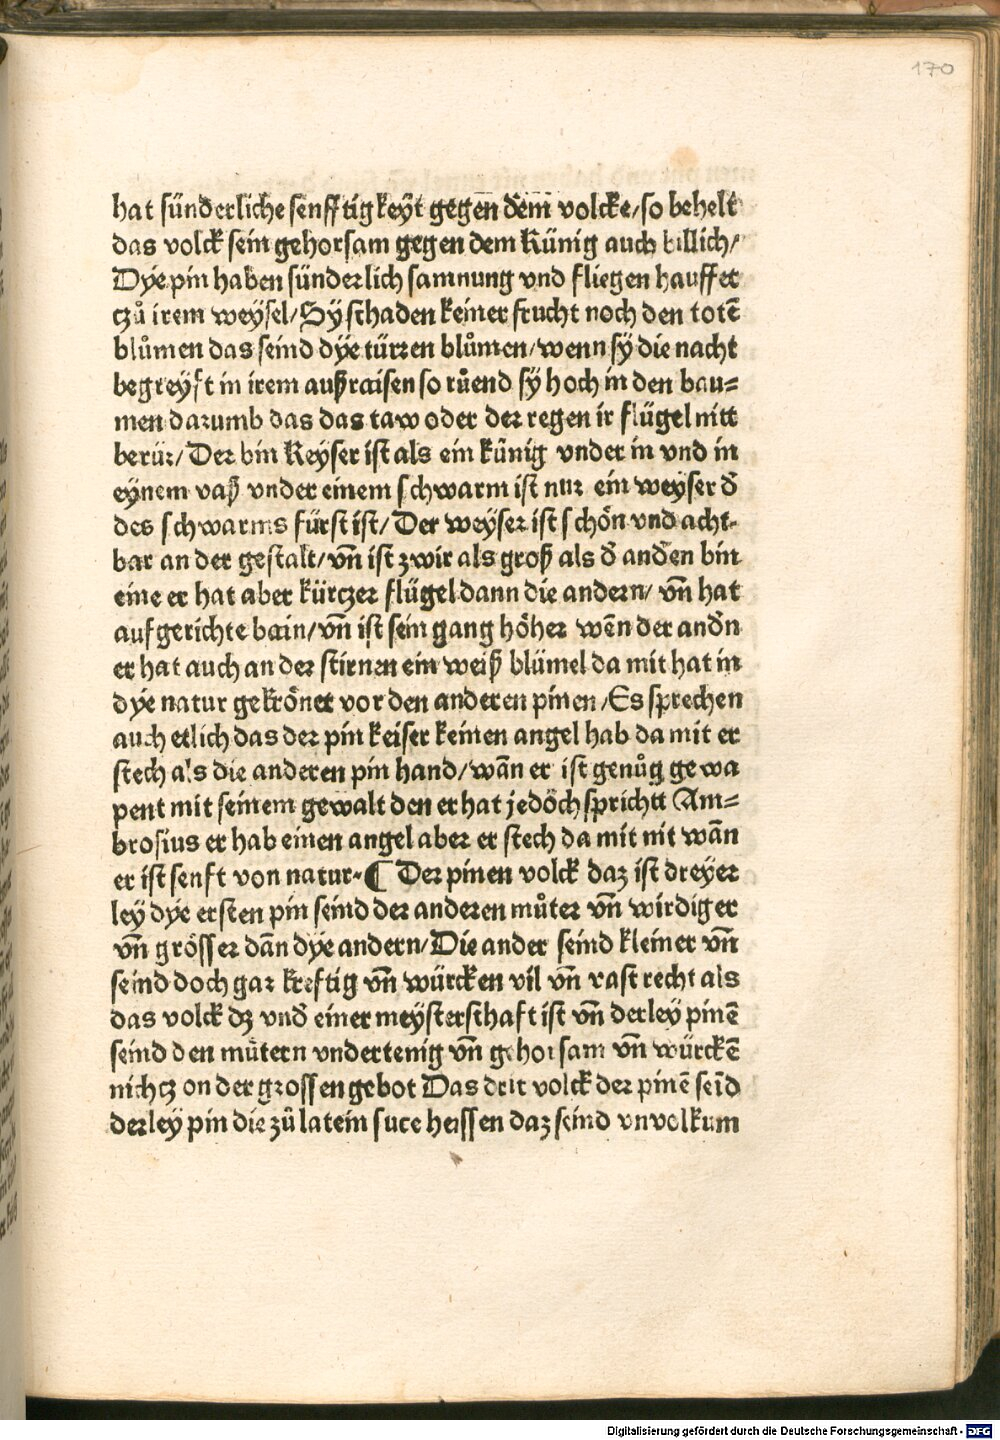 170
hat sünderliche senfftigkeÿt gegen̄ dem̄ volcke/so behelt
das volck sein gehorsam gegen dem Künig auch billich/
Dÿe pin haben sünderlich samnung vnd fliegen hauffet
czů irem weÿsel/Sÿ schaden keiner frucht noch den totē
blůmen das seind dÿe türren blůmen/wenn sÿ die nacht
begreÿft in irem außraisen so růend sÿ hoch in den bau=
men darumb das das taw oder der regen ir flügel nitt
berür/Der bin Keÿser ist als ein künig vnder in vnd in
eÿnem vaß vnder einem schwarm ist nur ein weÿser d̄
des schwarms fürst ist/Der weÿser ist schön vnd acht-
bar an der gestalt/vn̄ ist zwir als groß als d̄ and̄en bin
eine er hat aber kürczer flügel dann die andern/ vn̄ hat
aufgerichte bain/vn̄ ist sein gang höher wēn der and̄n
er hat auch an der stirnen ein weiß blümel da mit hat in
dÿe natur gekrönet vor den anderen pinen/Es sprechen
auch etlich das der pin keiser keinen angel hab da mit er
stech als die anderen pin hand/wān er ist genůg gewa
pent mit seinem gewalt den er hat jedöch sprichtt Am=
brosius er hab einen angel aber er stech da mit nit wān
er ist senft von natur-¶ Der pinen volck daz ist dreÿer
leÿ dÿe ersten pin seind der anderen můter vn̄ wirdiger
vn̄ grösser dān dÿe andern/Die ander seind kleiner vn̄
seind doch gar kreftig vn̄ würcken vil vn̄ vast recht als
das volck dz vnd̄ einer meÿsterschaft ist vn̄ derleÿ pinē
seind den mütern vndertenig vn̄ gehorsam vn̄ würckē
nichcz on der grossen gebot Das drit volck der pinē seīd
derleÿ pin die zů latein fuce heissen daz seind vnvolkum
Digitalisierung gefördert durch die Deutsche Forschungsgemeinschaft - DFG